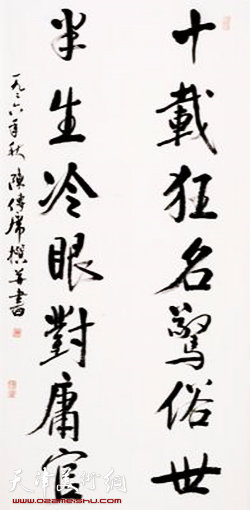 十載狂名驚俗世
半生冷眼對庸官
一九九六年秋 陳傳席撰并書
天津美術網
www.ozameishu.com